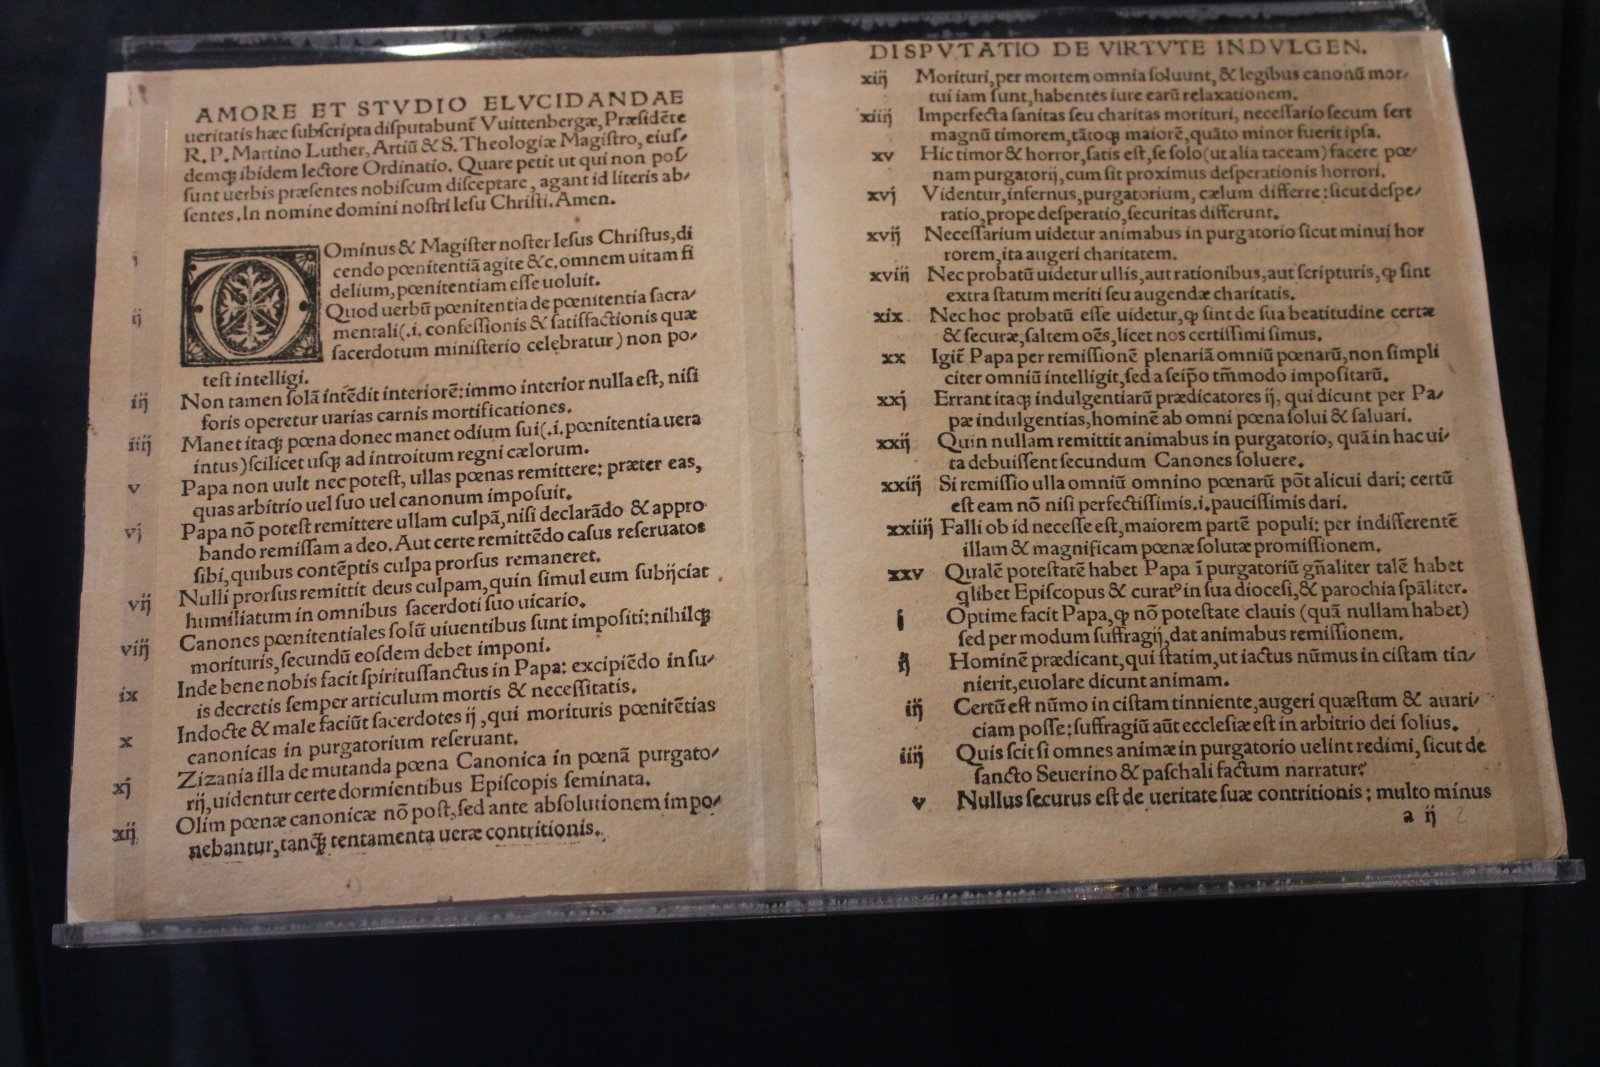 AMORE ET STVDIO ELVCIDANDAE
ueritatis hæc subscripta disputabunt̃ Vuittenbergæ, Præsidẽte
R.P. Martino Luther, Artiũ & S. Theologiæ Magistro, eius/
demq́; ibidem lectore Ordinatio. Quare petit ut qui non pos/
sunt uerbis præsentes nobiscum disceptare, agant id literis ab/
sentes. In nomine domini nostri Iesu Christi. Amen.
i Ominus & Magister noster Iesus Christus, di
cendo pœnitentiã agite &c. omnem uitam fi
delium, pœnitentiam esse uoluit.
ij Quod uerbũ pœnitentia de pœnitentia sacra/
mentali(.i. confessionis & satisfactionis quæ
sacerdotum ministerio celebratur) non po/
test intelligi.
iij Non tamen solã intẽdit interiorẽ: immo interior nulla est, nisi
foris operetur uarias carnis mortificationes.
iiij Manet itaq́; pœna donec manet odium sui(.i. pœnitentia uera
intus) scilicet usq́; ad introitum regni cælorum.
v Papa non uult nec potest, ullas pœnas remittere: præter eas,
quas arbitrio uel suo uel canonum imposuit.
vj Papa nõ potest remittere ullam culpã, nisi declarãdo & appro
bando remissam a deo. Aut certe remittẽdo casus reseruatos
sibi, quibus contẽptis culpa prorsus remaneret.
vij Nulli prorsus remittit deus culpam, quin simul eum subijciat
humiliatum in omnibus sacerdoti suo uicario.
viij Canones pœnitentiales solũ uiuentibus sunt impositi: nihilq́;
morituris, secundũ eosdem debet imponi.
ix Inde bene nobis facit spiritussanctus in Papa: excipiẽdo in su/
is decretis semper articulum mortis & necessitatis.
x Indocte & male faciũt sacerdotes ij, qui morituris pœnitẽtias
canonicas in purgatorium reseruant.
xj Zizania illa de mutanda pœna Canonica in pœnã purgato/
rij, uidentur certe dormientibus Episcopis seminata.
xij Olim pœnæ canonicæ nõ post, sed ante absolutionem impo/
nebantur, tanq́; tentamenta ueræ contritionis.
DISPVTATIO DE VIRTVTE INDVLGEN.
xiij Morituri, per mortem omnia soluunt, & legibus canonũ mor/
tui iam sunt, habentes iure earũ relaxationem.
xiiij Imperfecta sanitas seu charitas morituri, necessario secum fert
magnũ timorem, tãtoq́; maiorẽ, quãto minor fuerit ipsa.
xv Hic timor & horror, satis est, se solo (ut alia taceam) facere pœ/
nam purgatorij, cum sit proximus desperationis horrori.
xvj Videntur, infernus, purgatorium, cælum differre: sicut despe/
ratio, prope desperatio, securitas differunt.
xvij Necessarium uidetur animabus in purgatorio sicut minui hor
rorem, ita augeri charitatem.
xviij Nec probatũ uidetur ullis, aut rationibus, aut scripturis, ꝙ sint
extra statum meriti seu augendæ charitatis.
xix Nec hoc probatũ esse uidetur, ꝙ sint de sua beatitudine certæ
& securæ, saltem oẽs, licet nos certissimi simus.
xx Igit̃ Papa per remissionẽ plenariã omniũ pœnarũ, non simpli
citer omniũ intelligit, sed a seip̃o tm̃modo impositarũ.
xxj Errant itaq́; indulgentiarũ prædicatores ij, qui dicunt per Pa/
pæ indulgentias, hominẽ ab omni pœna solui & saluari.
xxij Quin nullam remittit animabus in purgatorio, quã in hac ui/
ta debuissent secundum Canones soluere.
xxiij Si remissio ulla omniũ omnino pœnarũ põt alicui dari: certũ
est eam nõ nisi perfectissimis .i. paucissimis dari.
xxiiij Falli ob id necesse est, maiorem partẽ populi: per indifferentẽ
illam & magnificam pœnæ solutæ promissionem.
xxv Qualẽ potestatẽ habet Papa ĩ purgatoriũ gñaliter talẽ habet
q̃libet Episcopus & curatꝰ in sua diocesi, & parochia sp̃aliter.
i Optime facit Papa, ꝙ nõ potestate clauis (quã nullam habet)
sed per modum suffragij, dat animabus remissionem.
ij Hominẽ prædicant, qui statim, ut iactus nũmus in cistam tin/
nierit, euolare dicunt animam.
iij Certũ est nũmo in cistam tinniente, augeri quæstum & auari/
ciam posse: suffragiũ aũt ecclesiæ est in arbitrio dei solius.
iiij Quis scit si omnes animæ in purgatorio uelint redimi, sicut de
sancto Seuerino & paschali factum narratur?
v Nullus securus est de ueritate suæ contritionis: multo minus
a ij 2